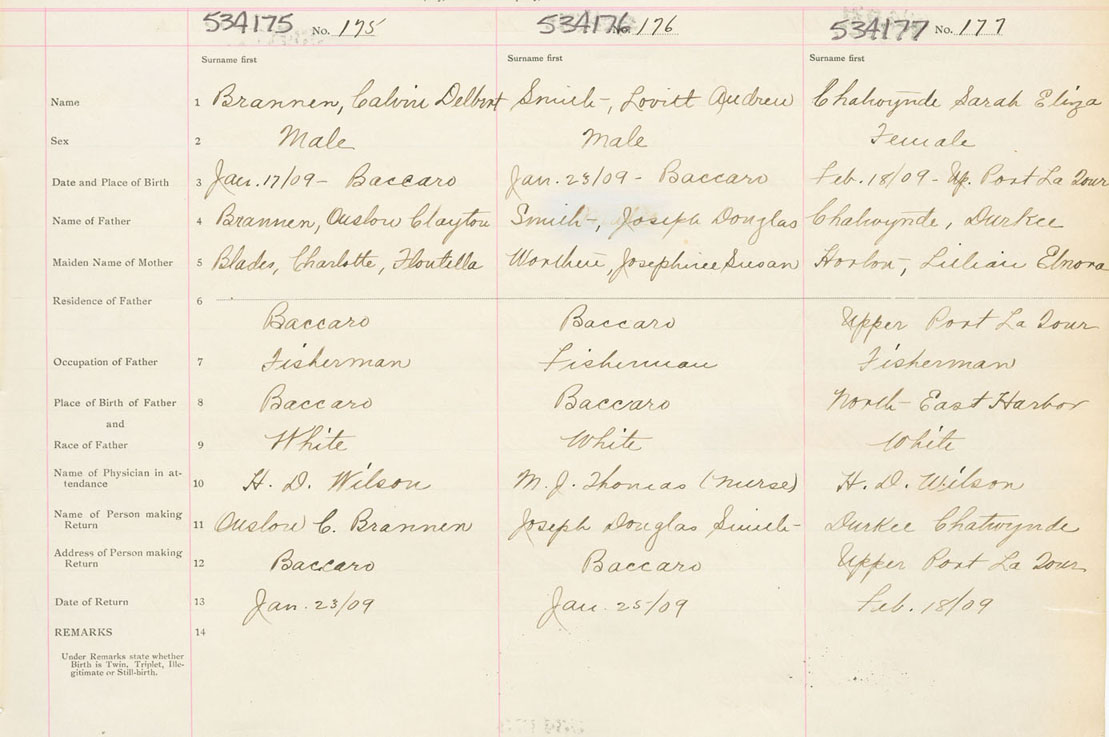 534175 No. 175 534176 No. 176 534177 No. 177
Surname first Surname first Surname first
Name 1 Brannen, Calvin Delbert Smith, Lovitt Andrew Chatwynde Sarah Eliza
Sex 2 Male Male Female
Date and Place of Birth 3 Jan. 17/09 - Baccaro Jan. 23/09 - Baccaro Feb. 18/09 - Up. Port La Tour
Name of Father 4 Brannen, Onslow Clayton Smith, Joseph Douglas Chatwynde, Durkee
Maiden Name of Mother 5 Blades, Charlotte, Worthen, Josephine Susan Horton, Lillian Elnora
Residence of Father 6
Baccaro Baccaro Upper Port La Tour
Occupation of Father 7 Fisherman Fisherman Fisherman
Place of Birth of Father 8 Baccaro Baccaro North East Harbor
and
Race of Father 9 White White White
Name of Physician in at-
tendance 10 H. D. Wilson M. J. Thomas (Nurse) H. D. Wilson
Name of Person making
Return 11 Onslow C. Brannen Joseph Douglas Smith Durkee Chatwynde
Address of Person making
Return 12 Baccaro Baccaro Upper Port La Tour
Date of Return 13 Jan. 23/09 Jan. 25/09 Feb. 18/09
REMARKS 14
Under Remarks state whether
Birth is Twin, Triplet, Ille-
gitimate or Still-birth.